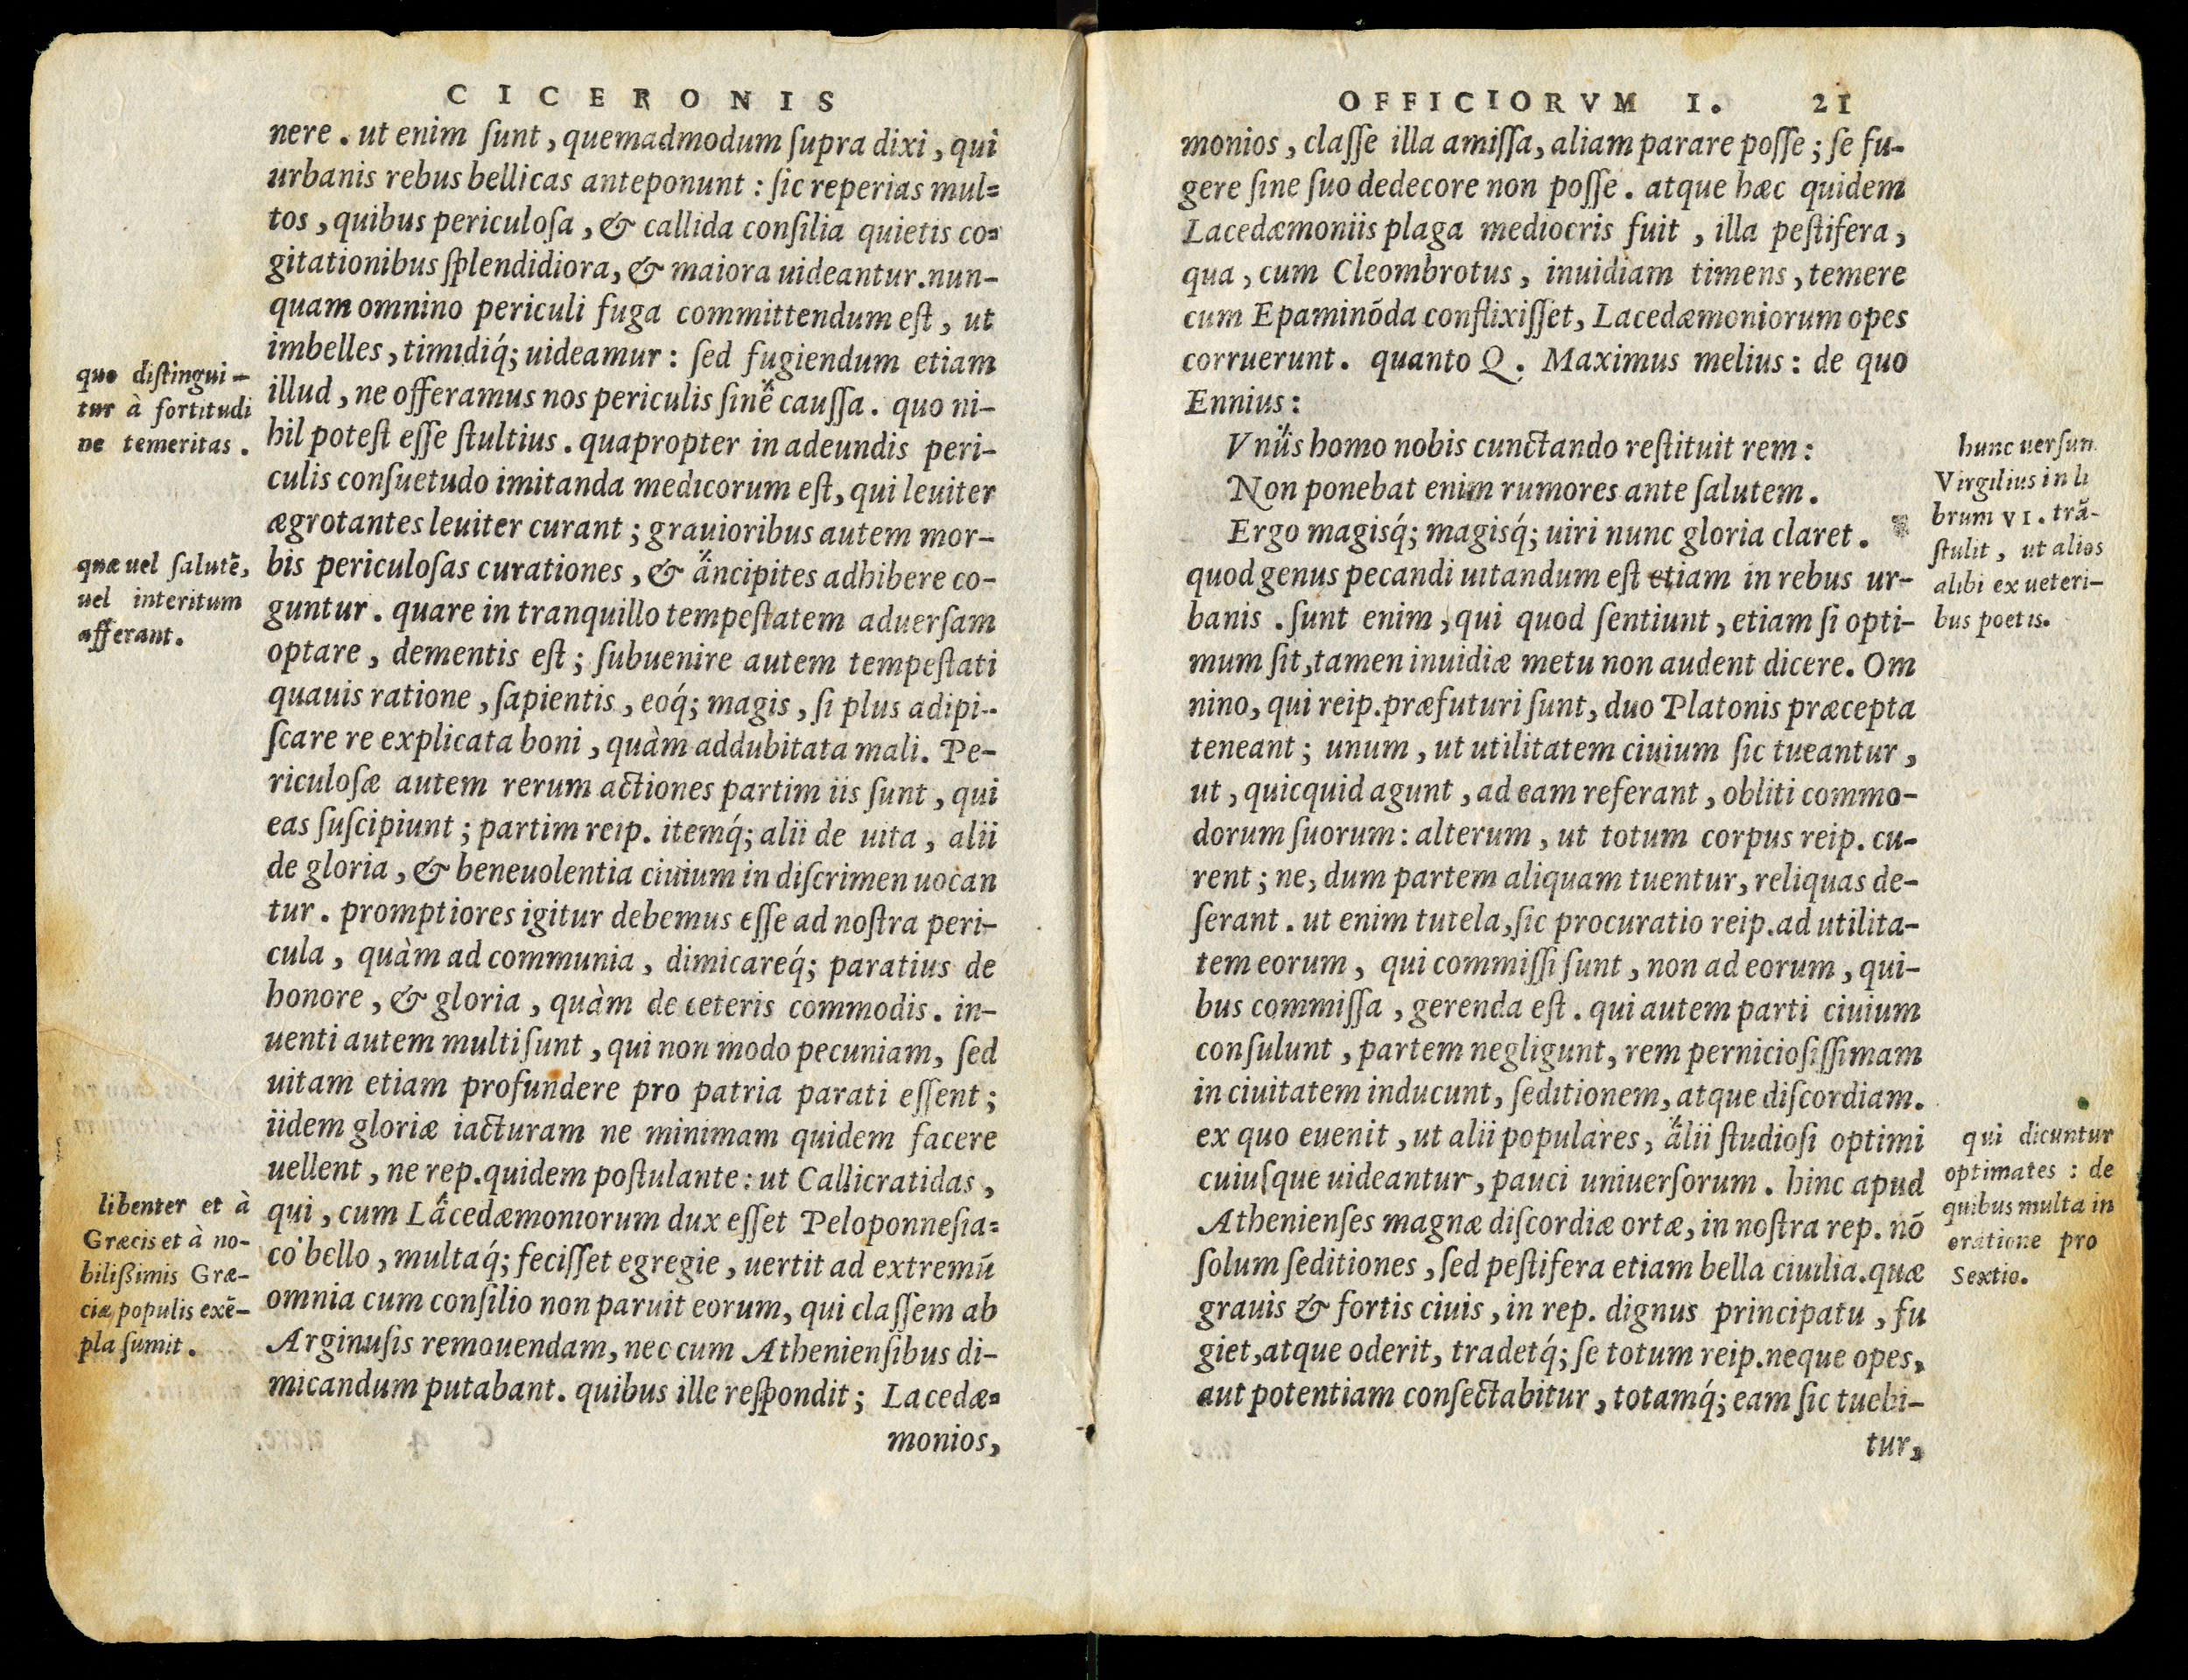 CICERONIS
nere. ut enim ſunt, quemadmodum ſupra dixi, qui
urbanis rebus bellicas anteponunt: ſic reperias mul=
tos, quibus periculoſa, & callida conſilia quietis co=
gitationibus ſplendidiora, & maiora uideantur. nun-
quam omnino periculi fuga committendum eſt, ut
imbelles, timidiq́; uideamur: ſed fugiendum etiam
illud, ne offeramus nos periculis ſine cauſſa. quo ni-
hil poteſt eſſe ſtultius. quapropter in adeundis peri-
culis conſuetudo imitanda medicorum eſt, qui leuiter
ægrotantes leuiter curant; grauioribus autem mor-
bis periculoſas curationes, & ancipites adhibere co-
guntur. quare in tranquillo tempeſtatem aduerſam
optare, dementis eſt; ſubuenire autem tempeſtati
quauis ratione, ſapientis, eoq́; magis, ſi plus adipi-
ſcare re explicata boni, quàm addubitata mali. Pe-
riculoſæ autem rerum actiones partim iis ſunt, qui
eas ſuſcipiunt; partim reip. itemq́; alii de uita, alii
de gloria, & beneuolentia ciuium in diſcrimen uocan
tur. promptiores igitur debemus eſſe ad noſtra peri-
cula, quàm ad communia, dimicareq́; paratius de
honore, & gloria, quàm de ceteris commodis. in-
uenti autem multi ſunt, qui non modo pecuniam, ſed
uitam etiam profundere pro patria parati eſſent;
iidem gloriæ iacturam ne minimam quidem facere
uellent, ne rep. quidem poſtulante: ut Callicratidas,
qui, cum Lacedæmoniorum dux eſſet Peloponneſia=
co bello, multaq́; feciſſet egregie, uertit ad extremū
omnia cum conſilio non paruit eorum, qui claſſem ab
Arginuſis remouendam, nec cum Athenienſibus di-
micandum putabant. quibus ille reſpondit; Lacedæ=
monios,
quo diſtingui-
tur à fortitudi
ne temeritas.
quæ uel ſalutē,
uel interitum
afferant.
libenter et à
Græcis et à no-
bilißimis Græ-
ciæ populis exē-
pla ſumit.
OFFICIORVM I. 21
monios, claſſe illa amiſſa, aliam parare poſſe; ſe fu-
gere ſine ſuo dedecore non poſſe. atque hæc quidem
Lacedæmoniis plaga mediocris fuit, illa peſtifera,
qua, cum Cleombrotus, inuidiam timens, temere
cum Epaminōda conflixiſſet, Lacedæmoniorum opes
corruerunt. quanto Q. Maximus melius: de quo
Ennius:
Vnus homo nobis cunctando reſtituit rem:
Non ponebat enim rumores ante ſalutem.
Ergo magisq́; magisq́; uiri nunc gloria claret.
quod genus pecandi uitandum eſt etiam in rebus ur-
banis. ſunt enim, qui quod ſentiunt, etiam ſi opti-
mum ſit, tamen inuidiæ metu non audent dicere. Om
nino, qui reip. præfuturi ſunt, duo Platonis præcepta
teneant; unum, ut utilitatem ciuium ſic tueantur,
ut, quicquid agunt, ad eam referant, obliti commo-
dorum ſuorum: alterum, ut totum corpus reip. cu-
rent; ne, dum partem aliquam tuentur, reliquas de-
ſerant. ut enim tutela, ſic procuratio reip. ad utilita-
tem eorum, qui commiſſi ſunt, non ad eorum, qui-
bus commiſſa, gerenda eſt. qui autem parti ciuium
conſulunt, partem negligunt, rem pernicioſiſſimam
in ciuitatem inducunt, ſeditionem, atque diſcordiam.
ex quo euenit, ut alii populares, alii ſtudioſi optimi
cuiuſque uideantur, pauci uniuerſorum. hinc apud
Athenienſes magnæ diſcordiæ ortæ, in noſtra rep. nō
ſolum ſeditiones, ſed peſtifera etiam bella ciuilia. quæ
grauis & fortis ciuis, in rep. dignus principatu, fu
giet, atque oderit, tradetq́; ſe totum reip. neque opes,
aut potentiam conſectabitur, totamq́; eam ſic tuebi-
tur,
hunc uerſum
Virgilius in li
brum VI. trā-
ſtulit, ut alios
alibi ex ueteri-
bus poetis.
qui dicuntur
optimates: de
quibus multa in
oratione pro
Sextio.